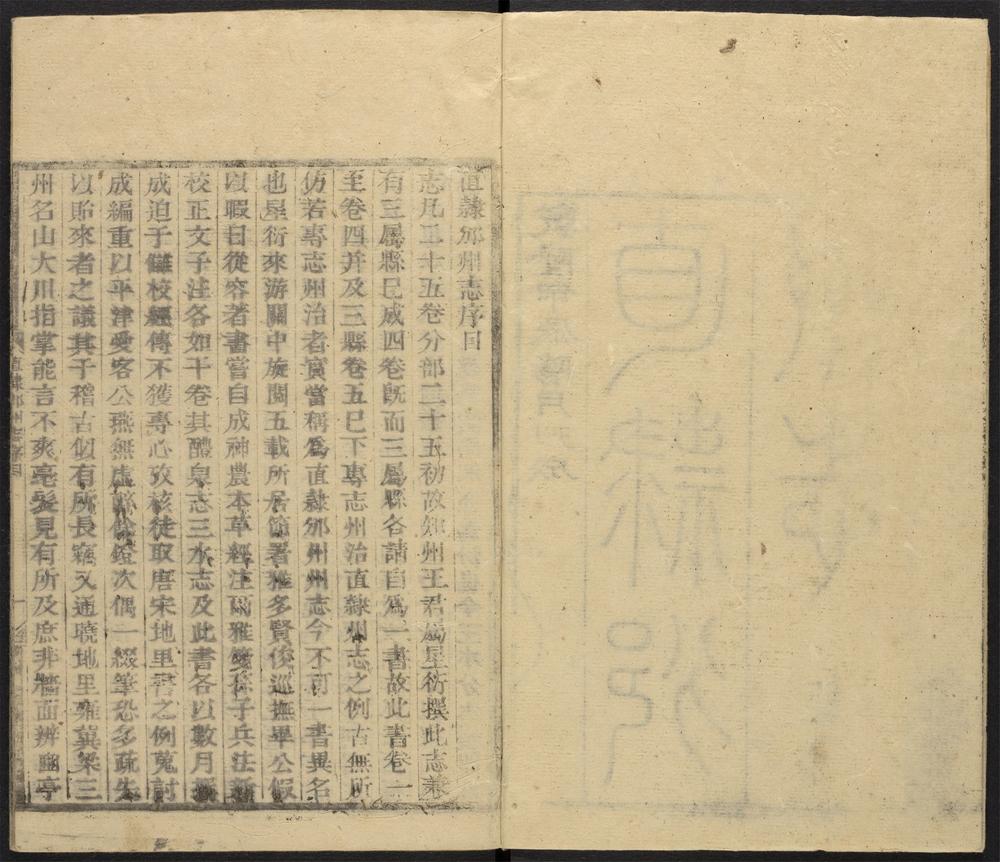 直隸邠州志序目
志凡二十五卷分部二十五初故知州王君屬星衍撰此志兼
有三屬縣巳成四卷旣而三屬縣各請自爲一書故此書卷一
至卷四并及三縣卷五巳下專志州治直隸州志之例古無所
仿若專志州治者實當稱爲直隸邠州州志今不可一書異名
也星衍來游關中旋閱五載所居節署雅多賢俊巡撫畢公假
以暇日從容著書嘗自成神農本草經注爾雅箋孫子兵法新
校正文子注各如干卷其醴泉志三水志及此書各以數月
成迫于讎校經傳不獲專心攷核徒取唐宋地里書之例蒐討
成編重以平津愛客公燕無虛醉餘鐙次偶一綴筆恐多疏失
以貽來者之議其于稽古似有所長竊又通曉地里雍冀梁三
州名山大川指掌能言不爽毫髮見有所及庶非牆面辨豳亭
直隸邠州志序目
一